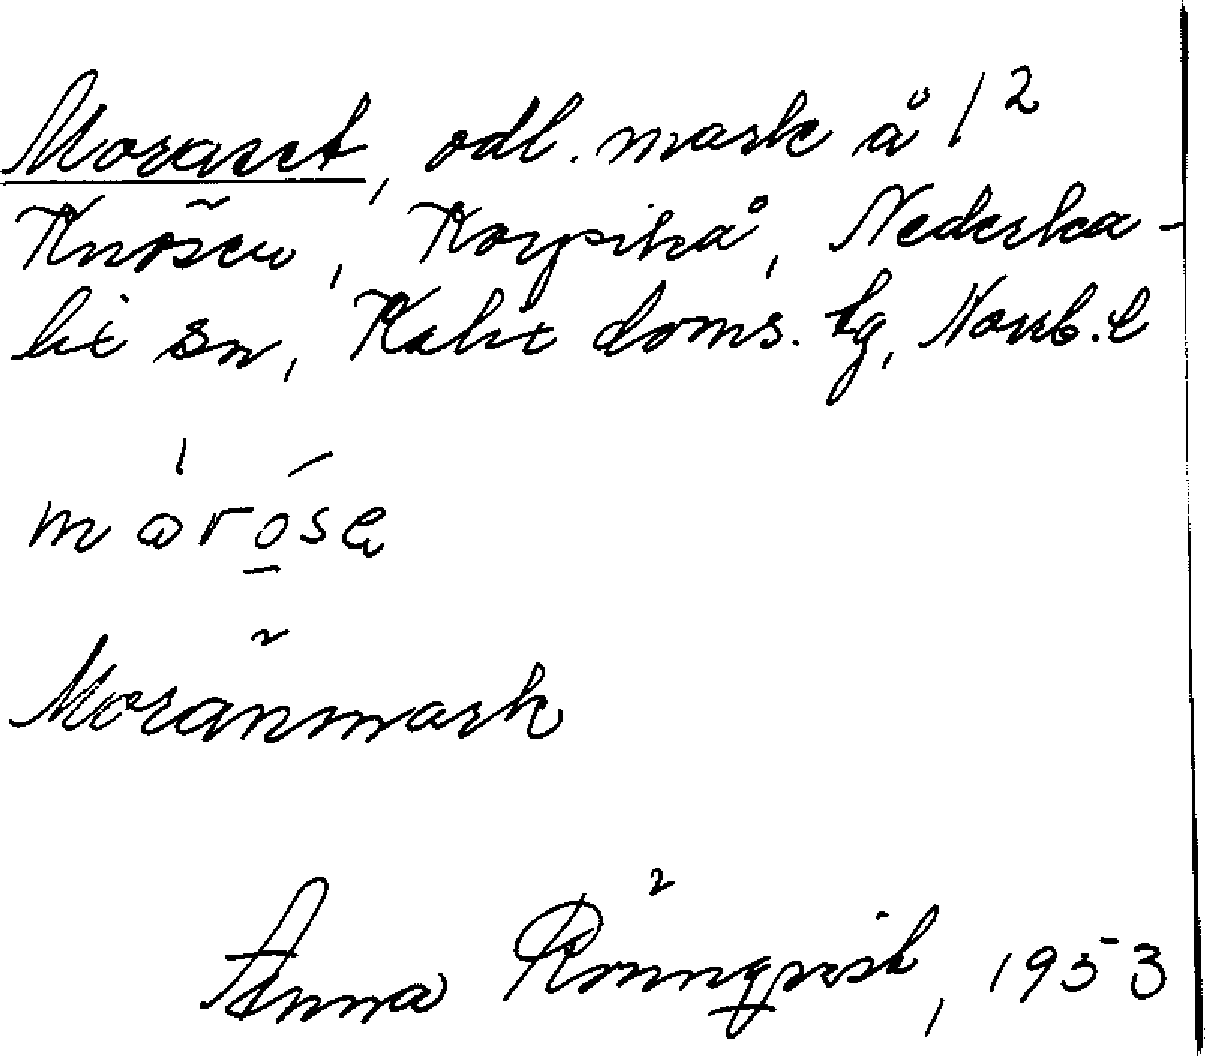 Moraset, odl. mark å 1²
Knösen, Korpikå, Nederka-
lix sn, Kalix doms. lg, Norrb. l
måróse
Moränmark
Anna Rönnqvist, 1953